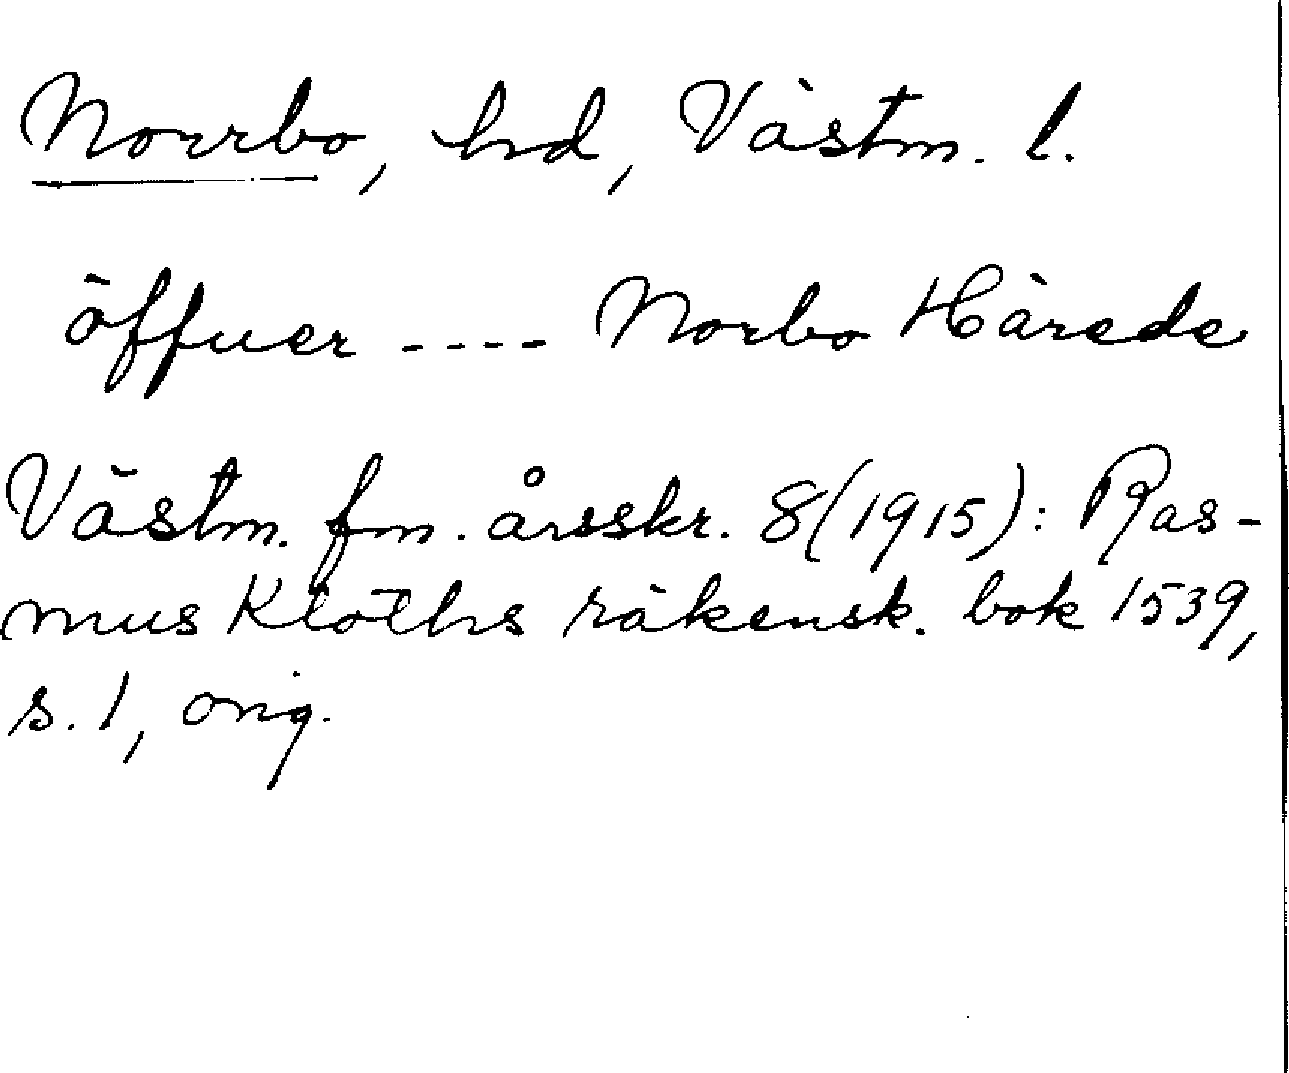 Norrbo, hd, Västm. l.
öffuer ---- Norbo Härede
Västm. fm. årsskr. 8(1915): Ras-
mus Klöths räkensk. bok 1539,
s. 1, orig.